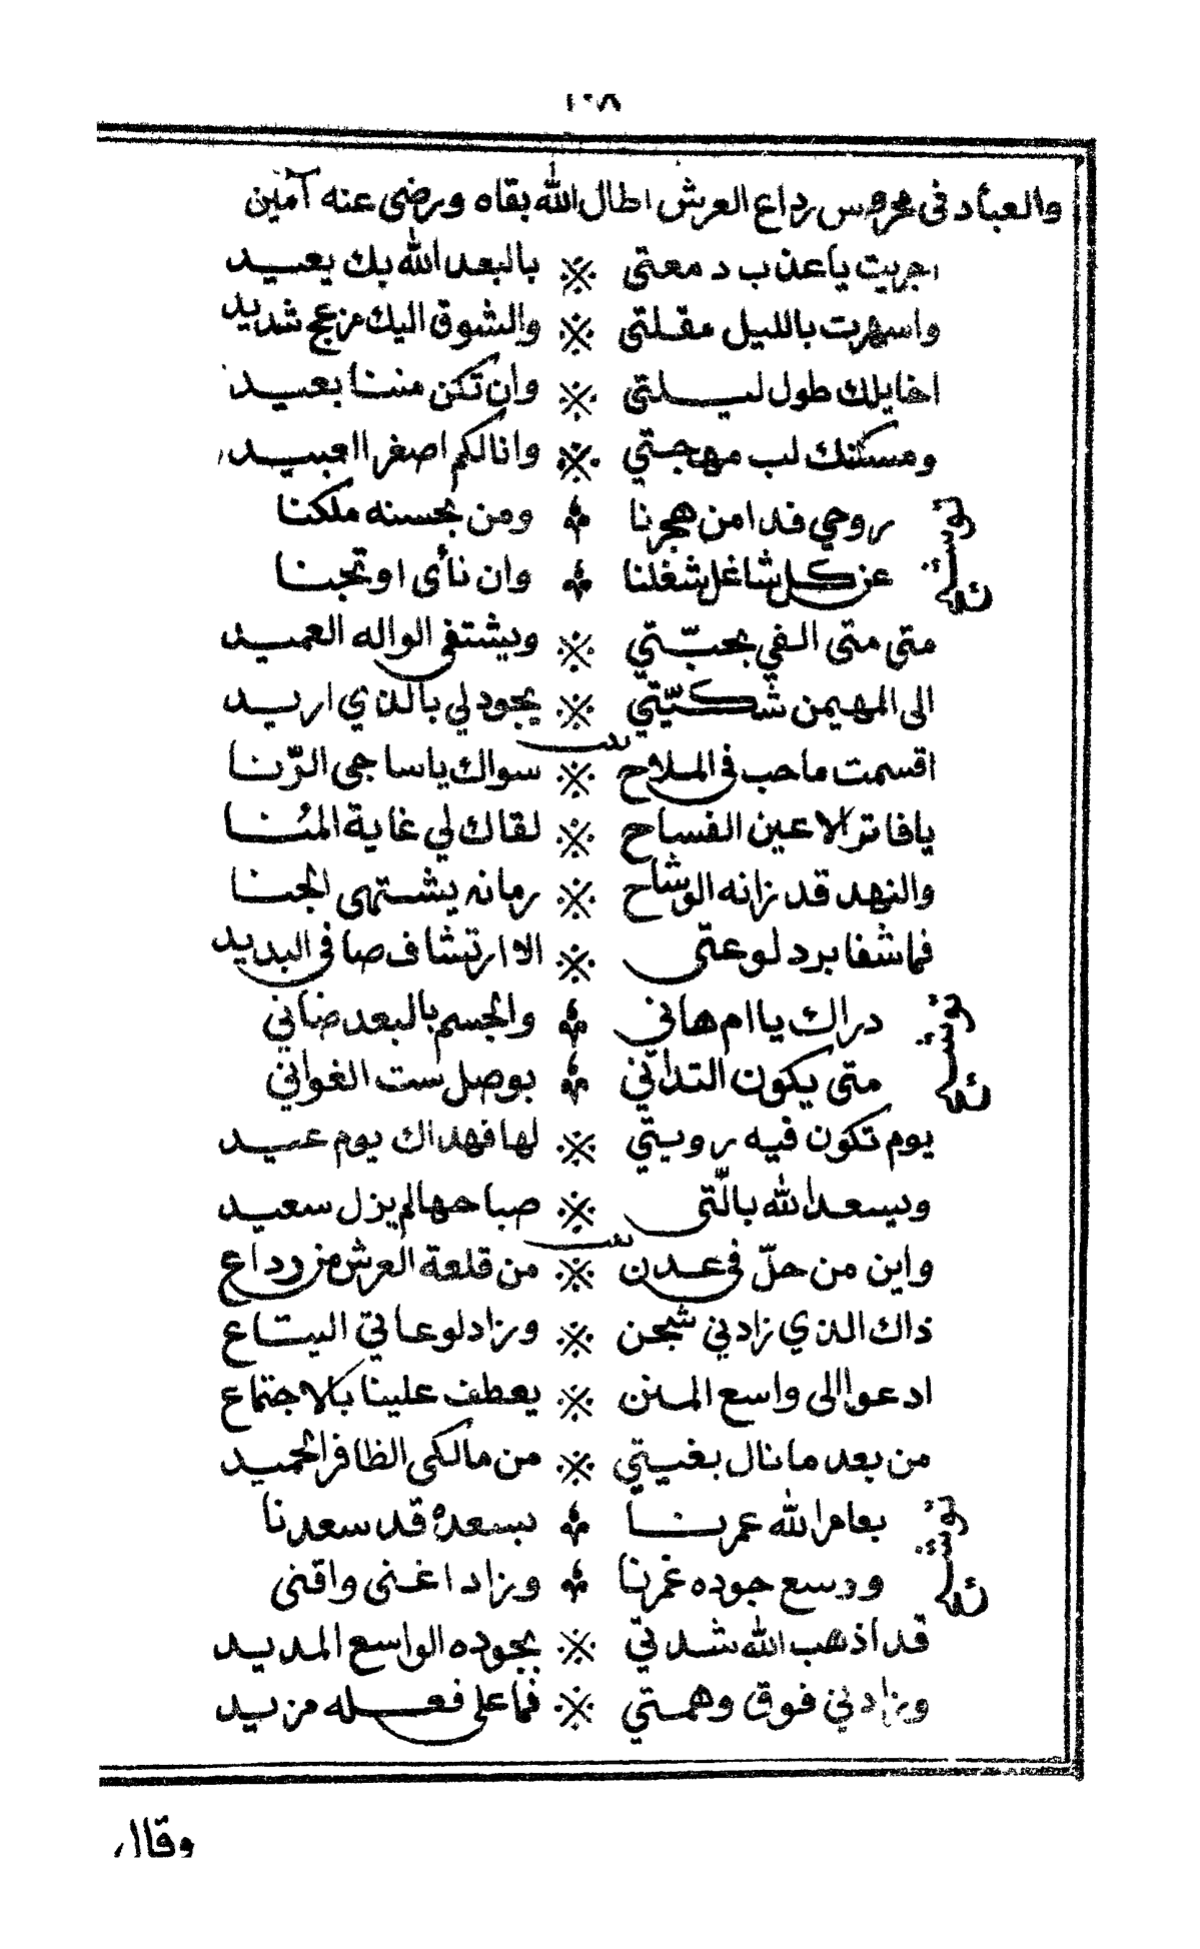 ١٠٨
والعبأد فى محروس رداع العرش اطال الله بقاه ورضى عنه آمين
اجريت ياعذب دمعتى ※ بالبعد الله بك يعيد
واسهرت بالليل مقلتى ※ والشوق اليك مزعج شديد
اخايلك طول ليلتى ※ وان تكن مننا بعيد
ومسكنك لب مهجتي ※ وانا لكم اصغر العبيد
توشيح
روحي فدا من هجرنا ومن بحسنه ملكنا
عن كل شاغل شغلنا وان نأى او تجنا
متى متى الفي بحبّتي ※ ويشتفى الواله العميد
الى المهيمن شكيّتي ※ يجود لي بالذي اريد
بيت
اقسمت ما حب فى الملاح ※ سواك ياساجى الرّنا
يافاتر الاعين الفساح ※ لقاك لي غاية المُنا
والنهد قد زانه الوشاح ※ رمانه يشتهى الجنا
فما شفا برد لوعتى ※ الا ارتشاف صافى البديد
توشيح
دراك ياام هاني والجسم بالبعد ضاني
متى يكون التداني بوصل ست الغواني
يوم تكون فيه رويتي ※ لها فهداك يوم عيد
ويسعد الله بالّتى ※ صباحها لم يزل سعيد
بيت
واين من حلّ فى عدن ※ من قلعة العرش من رداع
ذاك الذي زادني شجن ※ وزاد لوعاتي اليتاع
ادعوا الى واسع المنن ※ يعطف علينا بالاجتماع
من بعد ما نال بغيتي ※ من مالكى الظافر الحميد
توشيح
بعامر الله عمرنا بسعده قد سعدنا
ووسع جوده غمرنا وزاد اغنى واقنى
قد اذهب الله شدتي ※ بجوده الواسع المديد
وزادني فوق وهمتي ※ فما على فعله مزيد
وقال